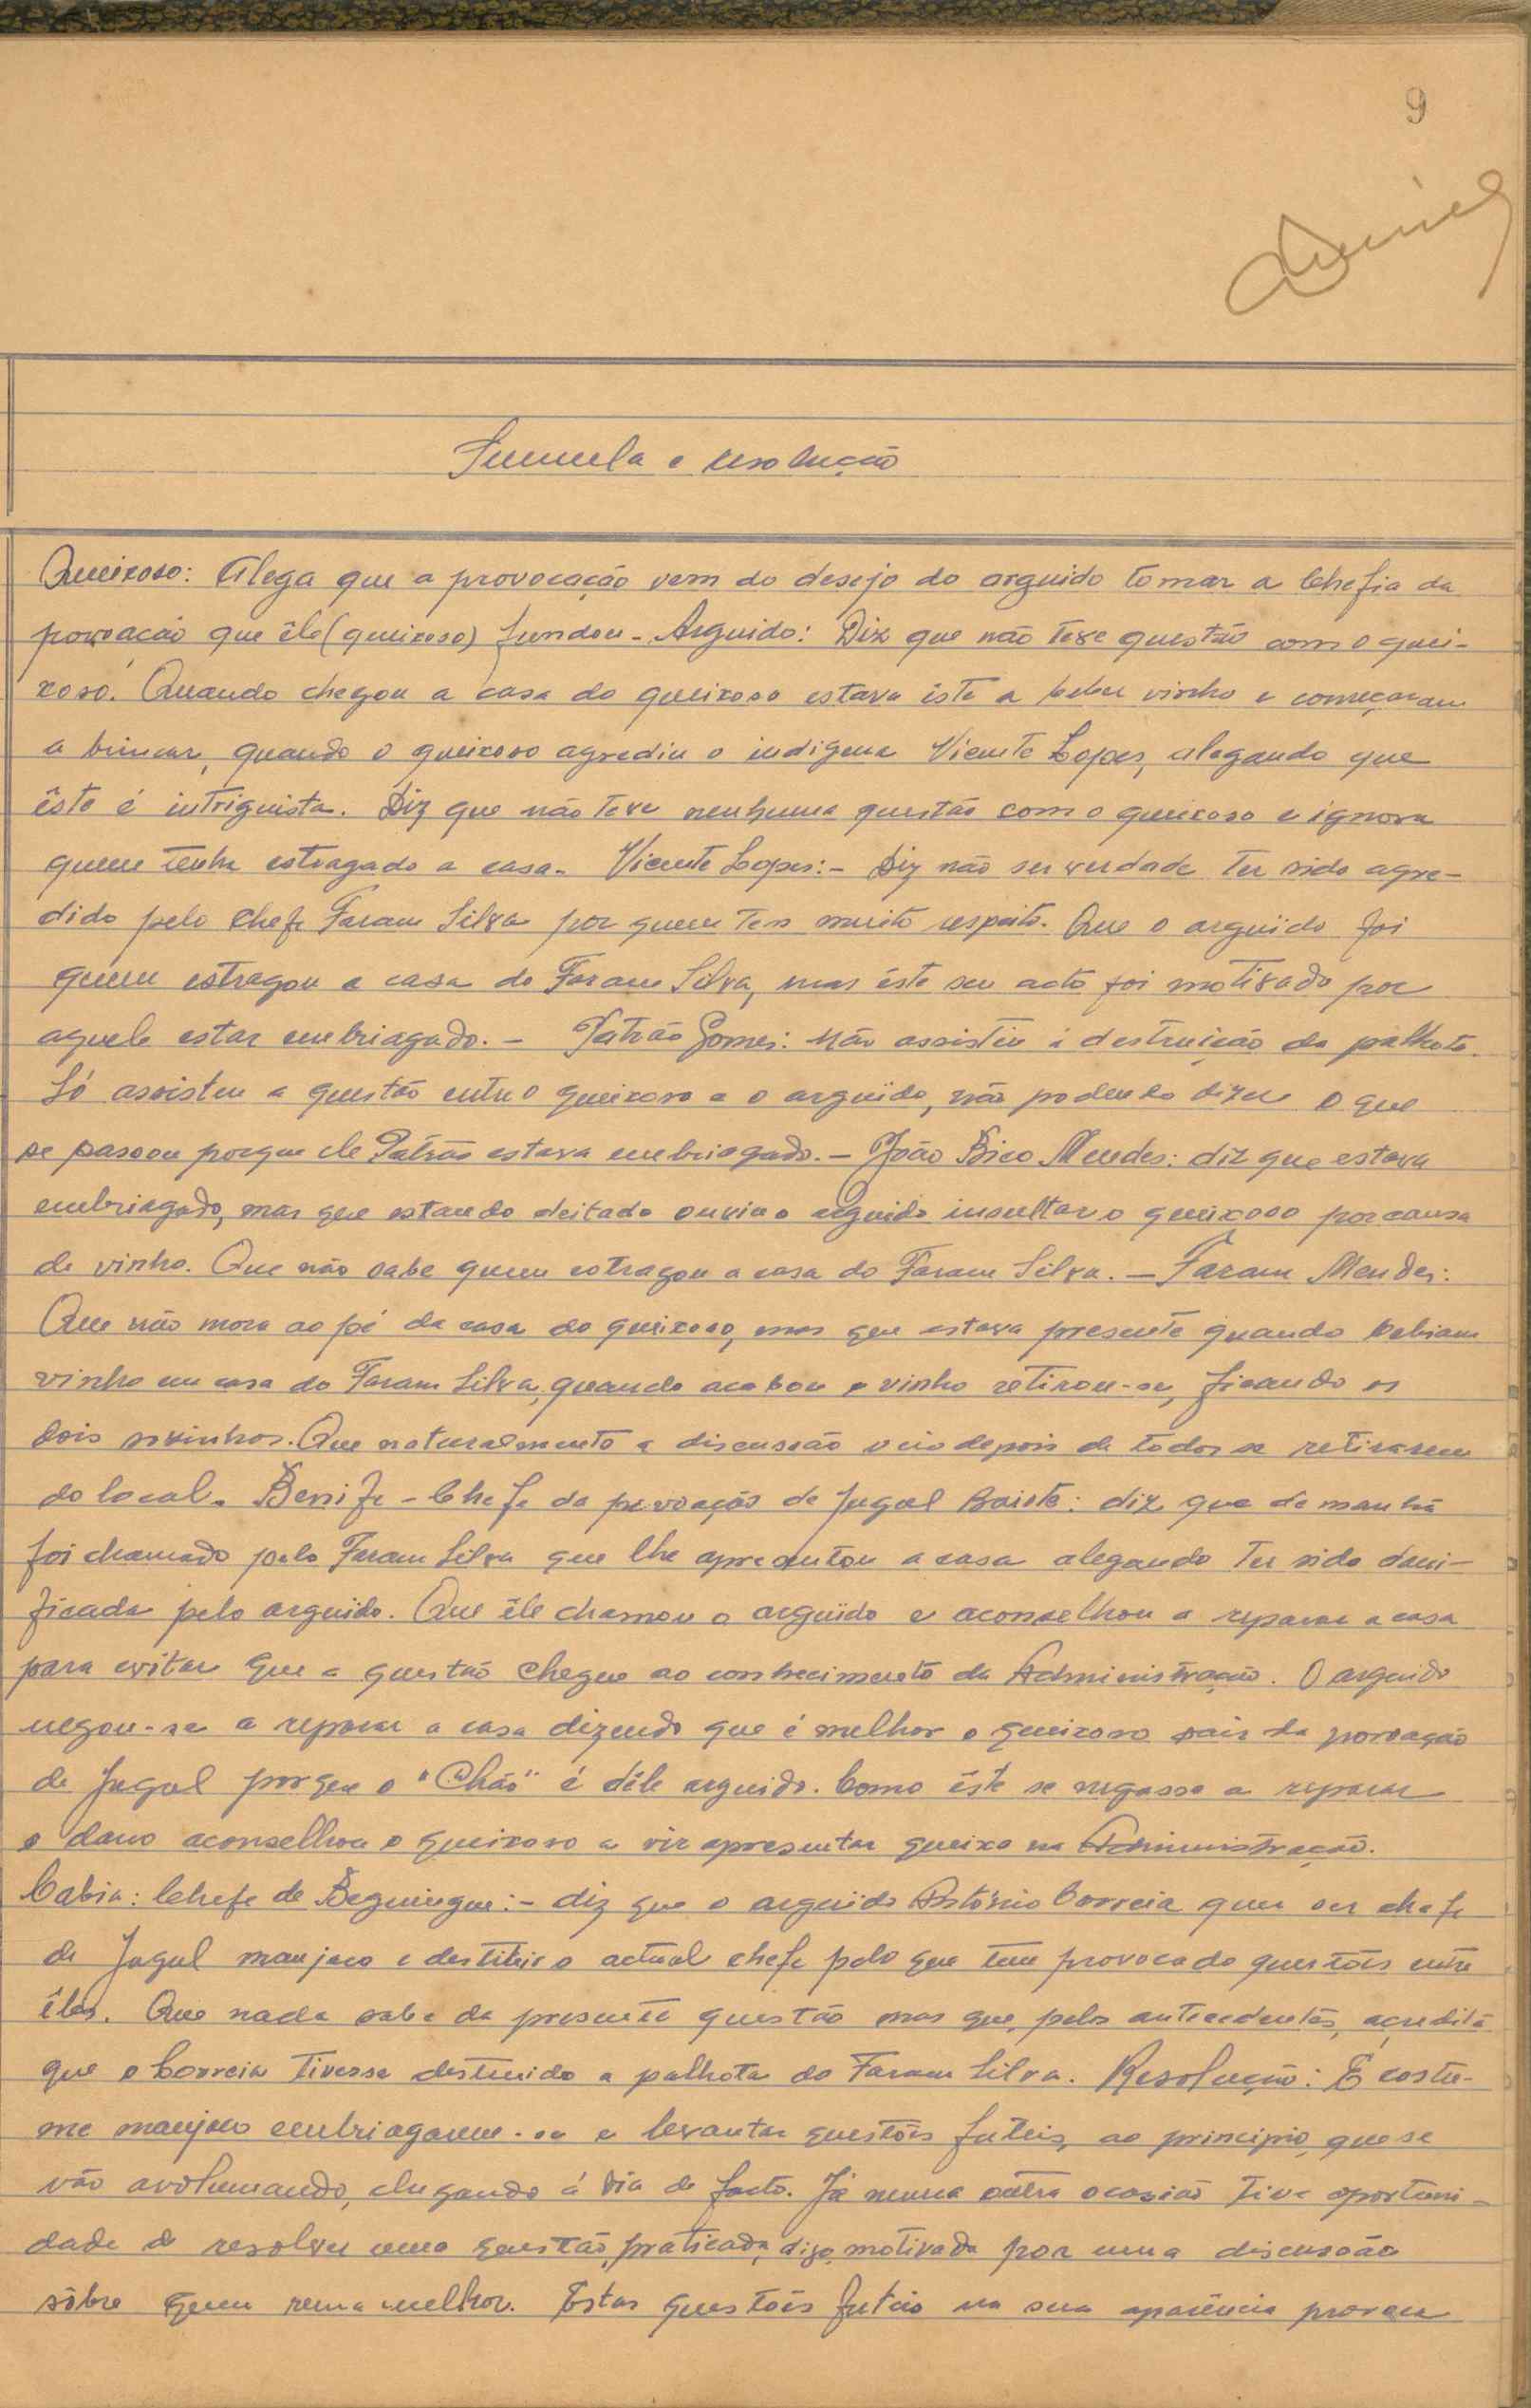 9
Sumula e resolução
Queixoso: Alega que a provocação vem do desejo do arguido tomar a Chefia da
povoação que êle (queixoso) fundou - Arguido: Diz que não teve questão com o quei-
xoso. Quando chegou a casa do queixoso estava êste a beber vinho e começaram
a brincar, quando o queixoso agrediu o indigena Vicente Lopes, alegando que
êste é intriguista. Diz que não teve nenhuma questão com o queixoso e ignora
quem tenha estragado a casa. Vicente Lopes: - Diz não ser verdade ter sido agre-
dido pelo Chefe Faram Silva por quem tem muito respeito. Que o arguido foi
quem estragou a casa do Faram Silva, mas êste seu acto foi motivado por
aquele estar embriagado. - Patrão Gomes: Não assistiu á destruição da palhota.
Só assisteu a questão entre o queixoso e o arguido, não podendo dizer o que
se passou porque ele Patrão estava embriagado. - João Bico Mendes: diz que estava
embriagado, mas que estando deitado ouviu o arguido insultar o queixoso por causa
de vinho. Que não sabe quem estragou a casa do Faram Silva. - Faram Mendes:
Que não mora ao pé da casa do queixoso, mas que estava presente quando bebiam
vinho em casa do Faram Silva, quando acabou o vinho retirou-se, ficando os
dois sozinhos. Que naturalmente a discussão veio depois de todos se retirarem
do local. Benife - Chefe da povoação de Jugul : diz que de manhã
foi chamado pelo Faram Silva que lhe apresentou a casa alegando ter sido dani-
ficada pelo arguido. Que êle chamou o arguido e aconselhou a reparar a casa
para evitar que a questão chegue ao conhecimento da Administração. O arguido
negou-se a reparar a casa dizendo que é melhor o queixoso sair da povoação
de Jugul porque o "Chão" é dêle arguido. Como êste se negasse a reparar
o dano aconselhou o queixoso a vir apresentar queixa na Administração.
Cabia: Chefe de : - diz que o arguido António Correia quer ser chefe
de Jugul manjaco e destituir o actual chefe pelo que tem provocado questões entre
êles. Que nada sabe da presente questão mas que, pelos antecedentes, acredita
que o Correia tivesse destruido a palhota do Faram Silva. Resolução: É costu-
me manjaco embriagarem-se e levantar questões futeis, ao principio, que se
vão avolumando, chegando á via de facto. Já numa outra ocasião tive oportuni-
dade de resolver uma questão, praticada, digo, motivada por uma discussão
sôbre quem rema melhor. Estas questões futeis na sua aparência provam